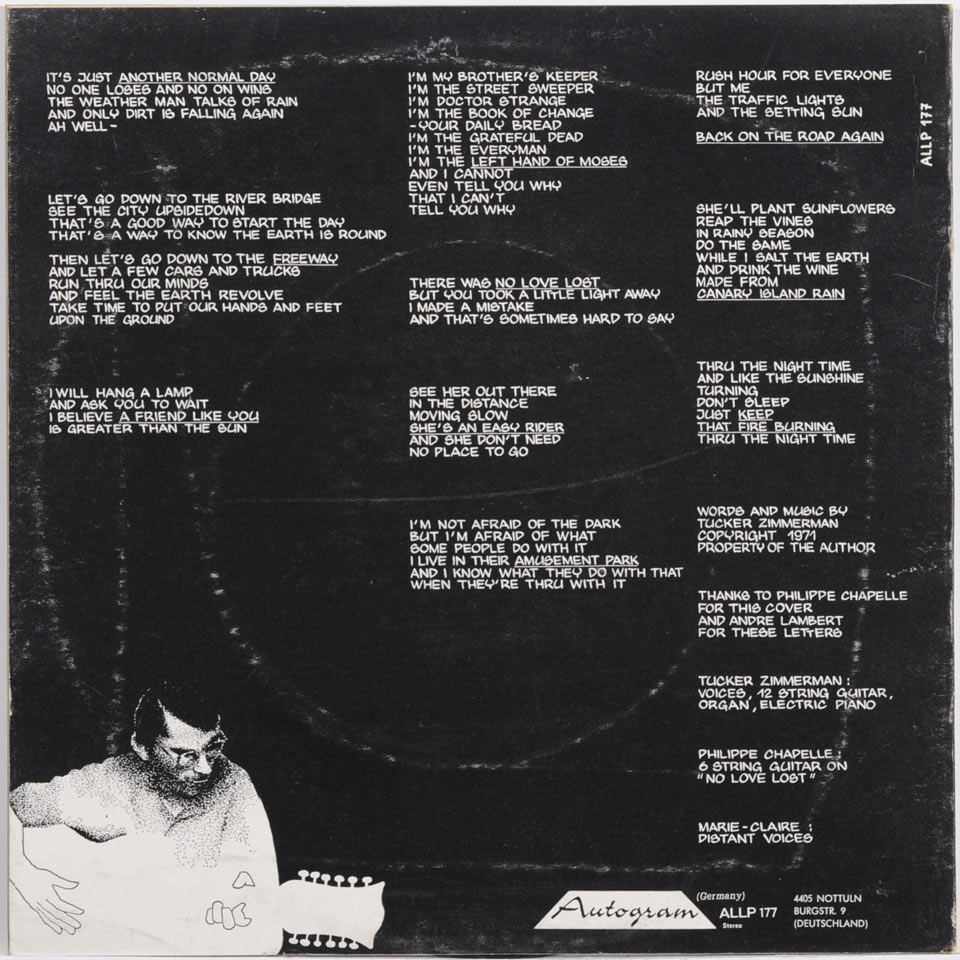 IT'S JUST ANOTHER NORMAL DAY
NO ONE LOSES AND NO ON WINS
THE WEATHER MAN TALKS OF RAIN
AND ONLY DIRT IS FALLING AGAIN
AH WELL -
LET'S GO DOWN TO THE RIVER BRIDGE
SEE THE CITY UPSIDEDOWN
THAT'S A GOOD WAY TO START THE DAY
THAT'S A WAY TO KNOW THE EARTH IS ROUND
THEN LET'S GO DOWN TO THE FREEWAY
AND LET A FEW CARS AND TRUCKS
RUN THRU OUR MINDS
AND FEEL THE EARTH REVOLVE
TAKE TIME TO PUT OUR HANDS AND FEET
UPON THE GROUND
I WILL HANG A LAMP
AND ASK YOU TO WAIT
I BELIEVE A FRIEND LIKE YOU
IS GREATER THAN THE SUN
I'M MY BROTHER'S KEEPER
I'M THE STREET SWEEPER
I'M DOCTOR STRANGE
I'M THE BOOK OF CHANGE
-YOUR DAILY BREAD
I'M THE GRATEFUL DEAD
I'M THE EVERYMAN
I'M THE LEFT HAND OF MOSES
AND I CANNOT
EVEN TELL YOU WHY
THAT I CAN'T
TELL YOU WHY
THERE WAS NO LOVE LOST
BUT YOU TOOK A LITTLE LIGHT AWAY
I MADE A MISTAKE
AND THAT'S SOMETIMES HARD TO SAY
SEE HER OUT THERE
IN THE DISTANCE
MOVING SLOW
SHE'S AN EASY RIDER
AND SHE DON'T NEED
NO PLACE TO GO
I'M NOT AFRAID OF THE DARK
BUT I'M AFRAID OF WHAT
SOME PEOPLE DO WITH IT
I LIVE IN THEIR AMUSEMENT PARK
AND I KNOW WHAT THEY DO WITH THAT
WHEN THEY'RE THRU WITH IT
RUSH HOUR FOR EVERYONE
BUT ME
THE TRAFFIC LIGHTS
AND THE SETTING SUN
BACK ON THE ROAD AGAIN
SHE'LL PLANT SUNFLOWERS
REAP THE VINES
IN RAINY SEASON
DO THE SAME
WHILE I SALT THE EARTH
AND DRINK THE WINE
MADE FROM
CANARY ISLAND RAIN
THRU THE NIGHT TIME
AND LIKE THE SUNSHINE
TURNING
DON'T SLEEP
JUST KEEP
THAT FIRE BURNING
THRU THE NIGHT TIME
WORDS AND MUSIC BY
TUCKER ZIMMERMAN
COPYRIGHT 1971
PROPERTY OF THE AUTHOR
THANKS TO PHILIPPE CHAPELLE
FOR THIS COVER
AND ANDRE LAMBERT
FOR THESE LETTERS
TUCKER ZIMMERMAN :
VOICES, 12 STRING GUITAR,
ORGAN, ELECTRIC PIANO
PHILIPPE CHAPELLE :
6 STRING GUITAR ON
"NO LOVE LOST"
MARIE-CLAIRE :
DISTANT VOICES
ALLP 177
Autogram
(Germany)
ALLP 177
Stereo
4405 NOTTULN
BURGSTR. 9
(DEUTSCHLAND)